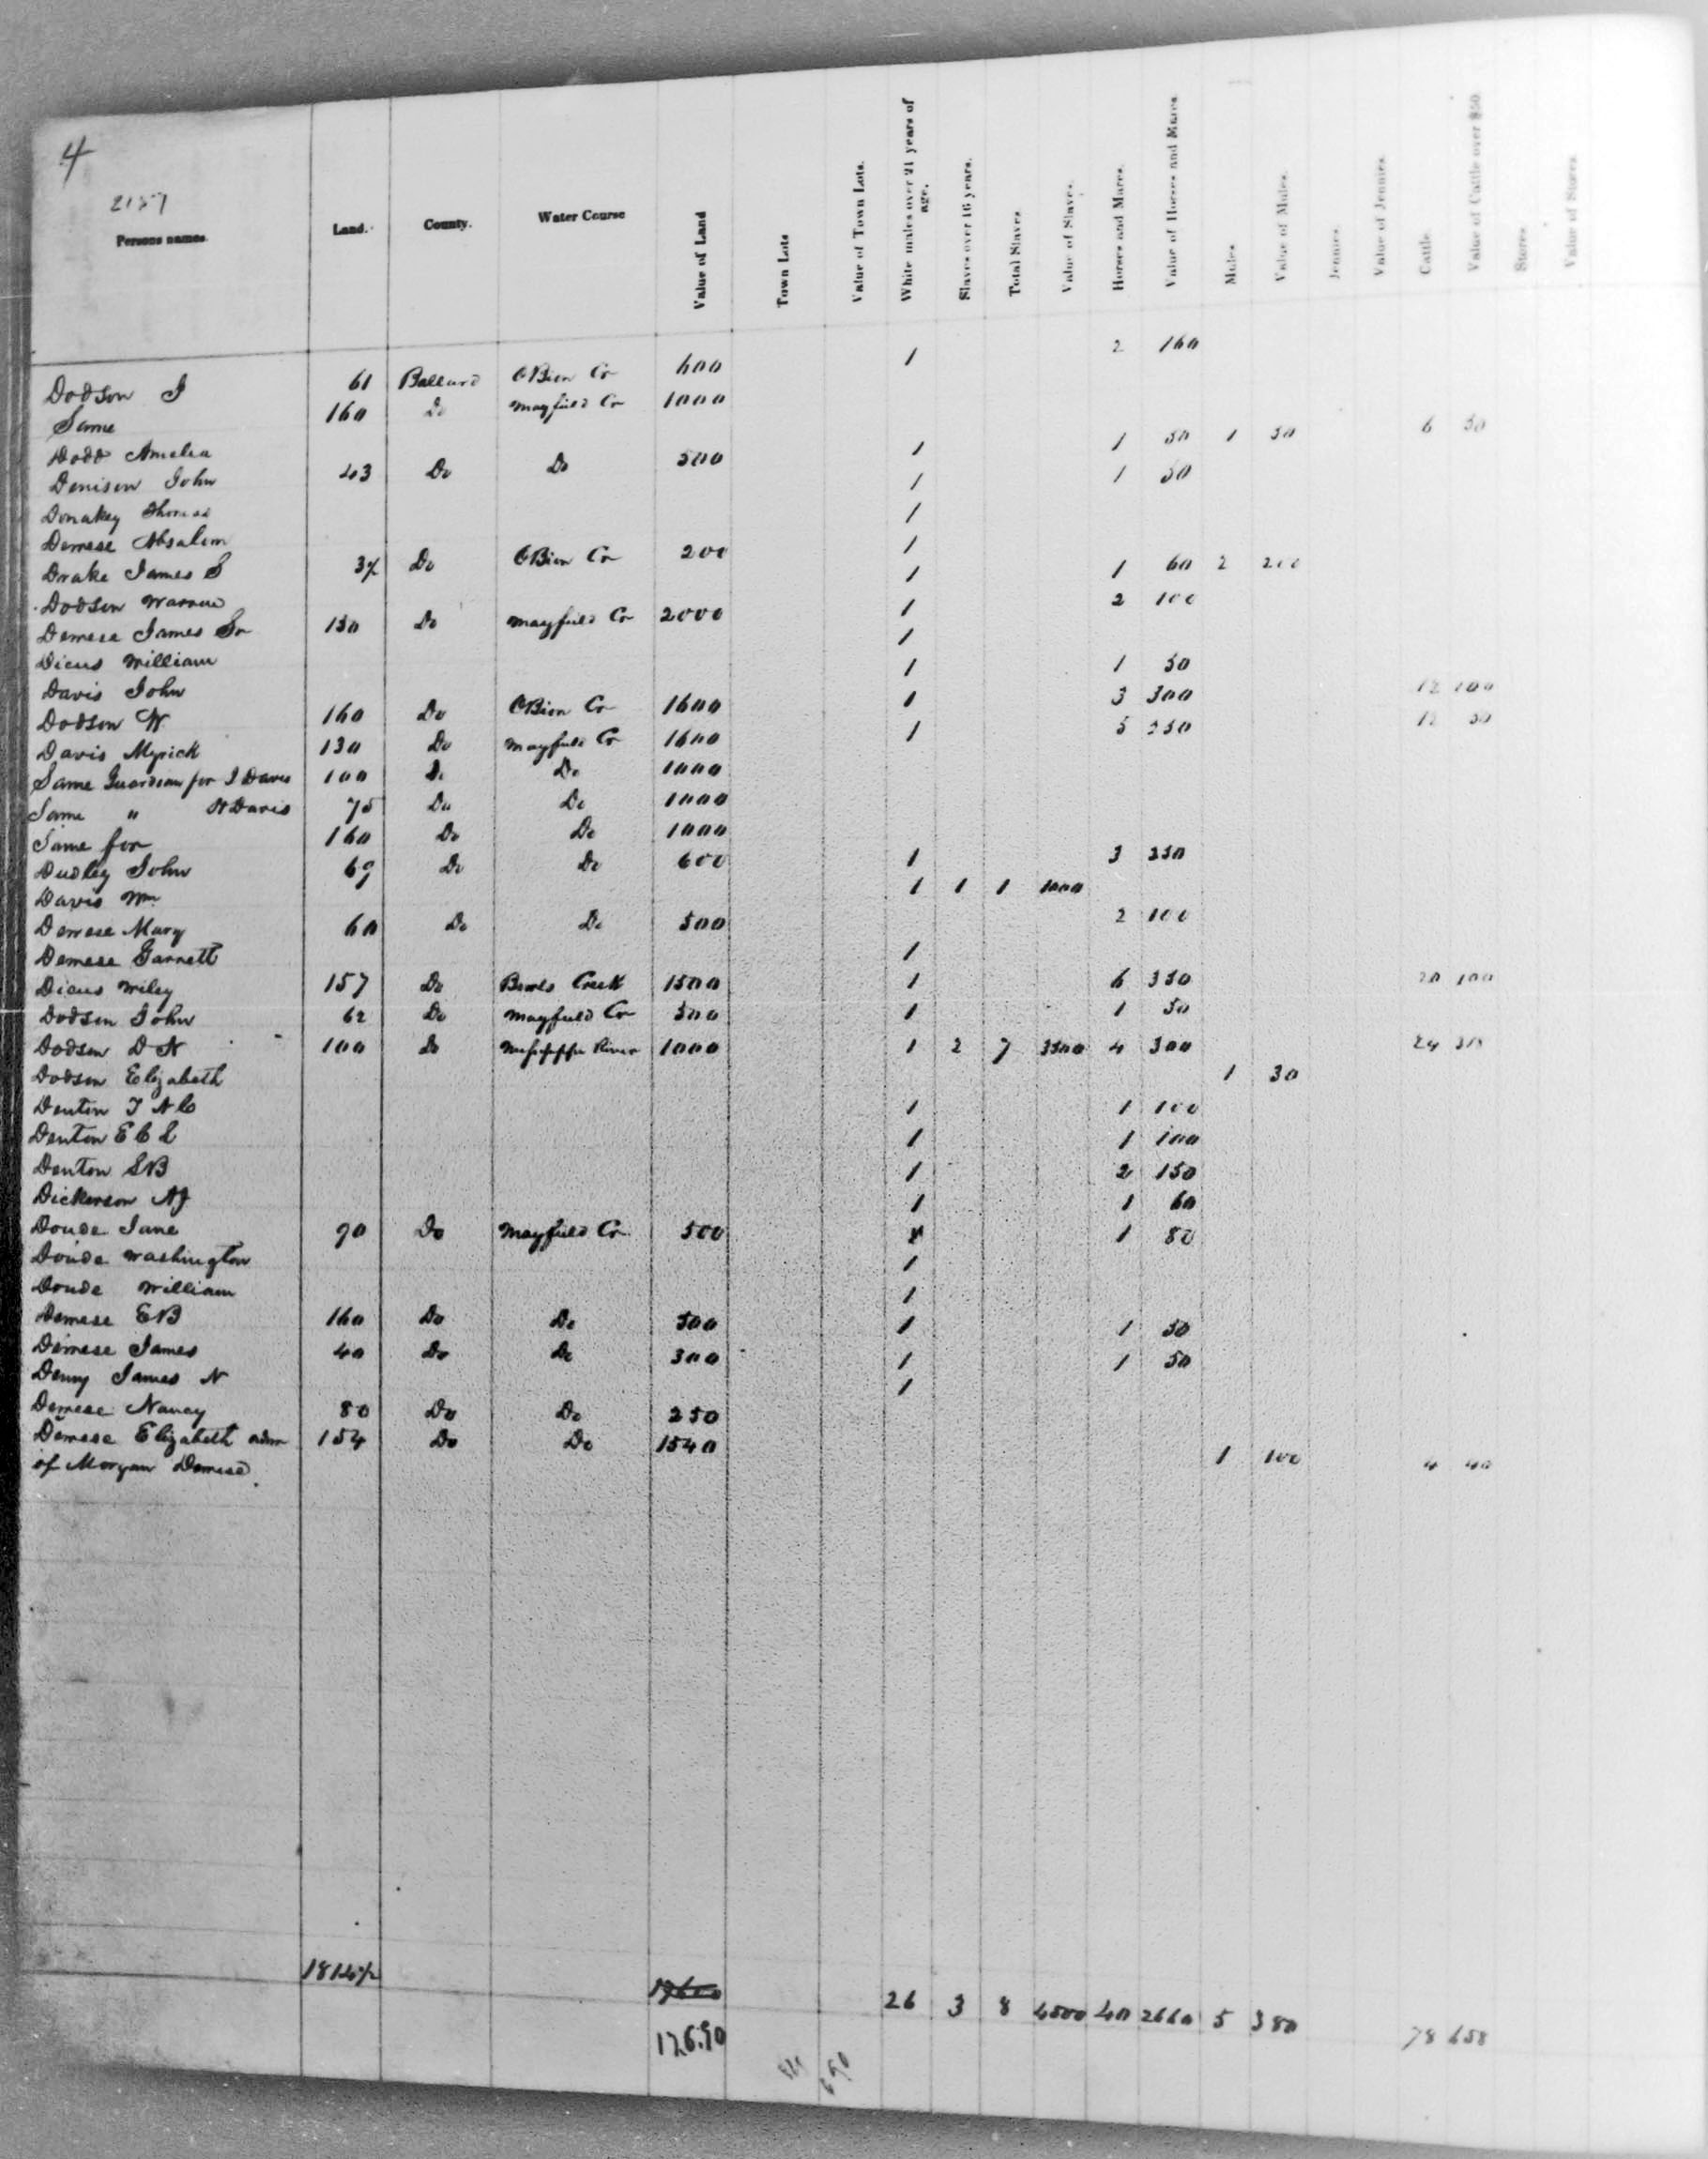 4
2157
Persons names. Land. County. Water Course Value of Land Town Lots Value of Town Lots. White males over 21 years of age. Slaves over 16 years. Total Slaves Value of Slaves. Horses and Mares. Value of Horses and Mares Mules Value of Mules. Jennies. Value of Jennies. Cattle. Value of Cattle over $50 Stores. Value of Stores.
Dodson J 61 Ballard OBion Cr 600 1 2 160
Same 160 Do Mayfield Cr 1000
Dodd Amelia 1 50 1 50 6 50
Denison John 43 Do Do 500 1 1 50
Donakey Thomas 1
Demese Absalem 1
Drake James S 3½ Do OBion Cr 200 1 1 60 2 200
Dodson Warren 1 2 100
Demese James Sr 130 Do Mayfield Cr 2000 1
Dicus William 1
Davis John 1 1 50
Dodson W 160 Do OBion Cr 1600 1 3 300 12 100
Davis Myrick 130 Do Mayfield Cr 1600 1 5 250 12 50
Same Guardian for J Davis 100 Do Do 1000
Same " W Davis 75 Do Do 1000
Same for 160 Do Do 1000
Dudley John 69 Do Do 600 1 3 250
Davis Wm 1 1 1 1000
Demese Mary 60 Do Do 500 2 100
Demese Garnett 1
Dicus Wiley 157 Do Creek 1500 1 6 350 20 100
Dodson John 62 Do Mayfield Cr 500 1 1 50
Dodson D N 100 Do Mississippi River 1000 1 2 7 3500 4 300 24 318
Dodson Elizabeth 1 30
Denton J N C 1 1 100
Denton E C L 1 1 100
Denton S B 1 2 150
Dickerson A J 1 1 60
Doude Jane 90 Do Mayfield Cr 500 1 80
Doude Washington 1
Doude William 1
Demese E B 160 Do Do 500 1 1 50
Demese James 40 Do Do 300 1 1 50
Denny James N 1
Demese Nancy 80 Do Do 250
Demese Elizabeth adm 154 Do Do 1540
of Morgan Demese 1 100 4 40
1814½ 17600 26 3 8 4500 40 2660 5 380 78 658
17690